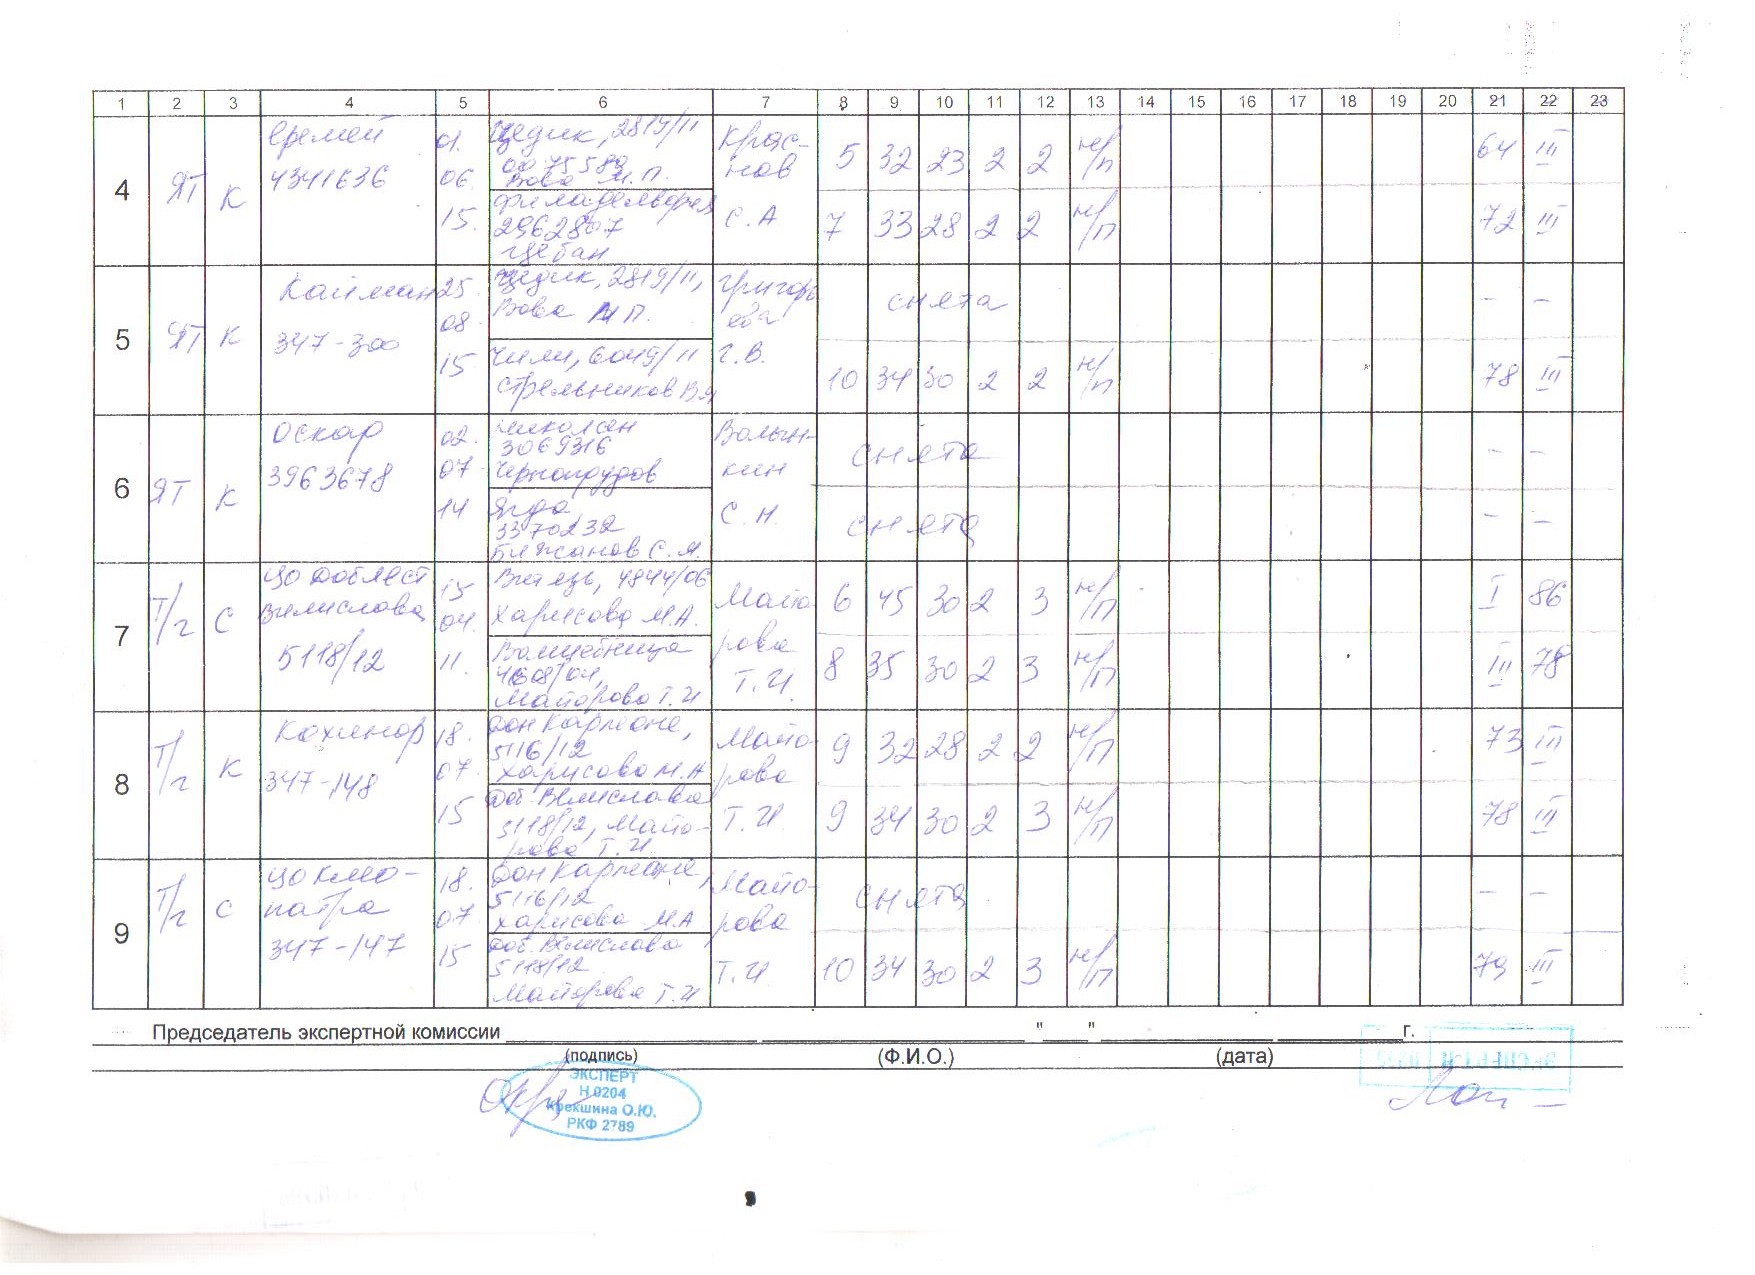 1 2 3 4 5 6 7 8 9 10 11 12 13 14 15 16 17 18 19 20 21 22 23
4 ЯТ К Еремей 4341636 01. 06. 15.
Цедик, 2819/11
Вова М.П.
2962807
Крас-
нов
С. А
5 32 23 2 2 н/п 64 III
7 33 28 2 2 н/п 72 III
5 ЯТ К Кайман 347-300 25. 08. 15
Цедик, 2819/11,
Вова М П.
Чили, 6049/11
Стрельников В.Я
Григорь
ева
Г.В.
снята - -
10 34 30 2 2 н/п 78 III
6 ЯТ К Оскар 3963678 02. 07. 14
Николсен
3069316
Чернопрудов
Ягда
3370232
Бижанов С. М.
Волын-
кин
С. Н.
снята - -
снята - -
7 Т/г С ЦО Доблест Вимислова 5118/12 15 04. 11.
Витязь, 4844/06
Харисова М.А.
Волшебница
4608/04,
Майорова Т. И
Майо
рова
Т. И.
6 45 30 2 3 н/п I 86
8 35 30 2 3 н/п III 78
8 Т/г К Кохинор 347-148 18. 07. 15
Дон Карлеоне,
5116/12
Харисова М. А
Доб. Вимислова
5118/12, Майо-
рова Т. И.
Майо-
рова
Т. И
9 32 28 2 2 н/п 73 III
9 34 30 2 3 н/п 78 III
9 Т/г С ЦО Клео-
патра
347-147 18. 07. 15
Дон Карлеоне,
5116/12
Харисова М.А
Доб. Вимислова
5118/12
Майорова Т. И
Майо-
рова
Т. И
снята - -
10 34 30 2 3 н/п 79 III
Председатель экспертной комиссии " " г.
(подпись) (Ф.И.О.) (дата)
ЭКСПЕРТ
Н 0204
Крекшина О.Ю.
РКФ 2789